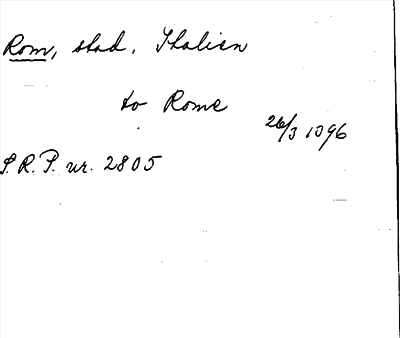 Rom, stad. Italien
to Rome
26/3 1396
S.R.P. nr. 2805